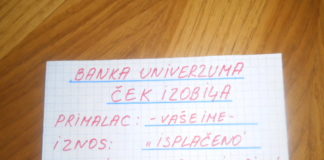 BANKA UNIVERZUMA
ČEK IZOBILJA
PRIMALAC: -VAŠE IME-
IZNOS: „ISPLAĆENO"